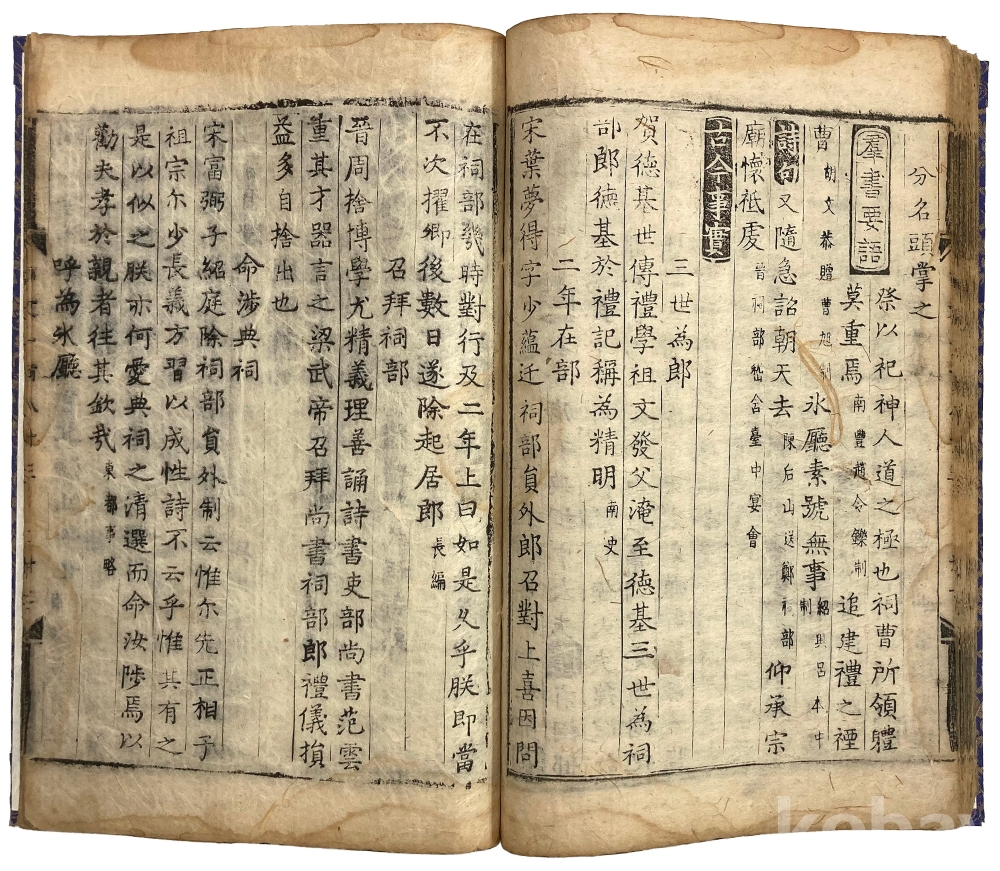 分名頭掌之
羣書要語 祭以祀神人道之極也祠曹所領軆
莫重焉 南豐趙令鑠制 追建禮之禋
曹 胡文恭贈曹旭制 氷廳素號無事 紹興呂本中制 仰承宗
詩句 又隨急詔朝天去 陳后山送鄭祠部
廟懷祗䖍 晉祠部嵇含臺中宴會
古今事實
三世為郎
賀德基世傳禮學祖文發父淹至德基三世為祠
部郎德基於禮記稱為精明 南史
二年在部
宋葉夢得字少蘊迁祠部員外郎召對上喜因問
在祠部幾時對行及二年上曰如是乆乎朕即當
不次擢卿後數日遂除起居郎 長編
召拜祠部
晉周捨博學尤精義理善誦詩書吏部尚書范雲
重其才器言之梁武帝召拜尚書祠部郎禮儀損
益多自捨出也
命涉典祠
宋富弼子紹庭除祠部員外制云惟尔先正相予
祖宗尔少長義方習以成性詩不云乎惟其有之
是以似之朕亦何愛典祠之清選而命汝陟焉以
勸夫孝於親者往其欽㢤 東都事略
呼為氷廳
kobay